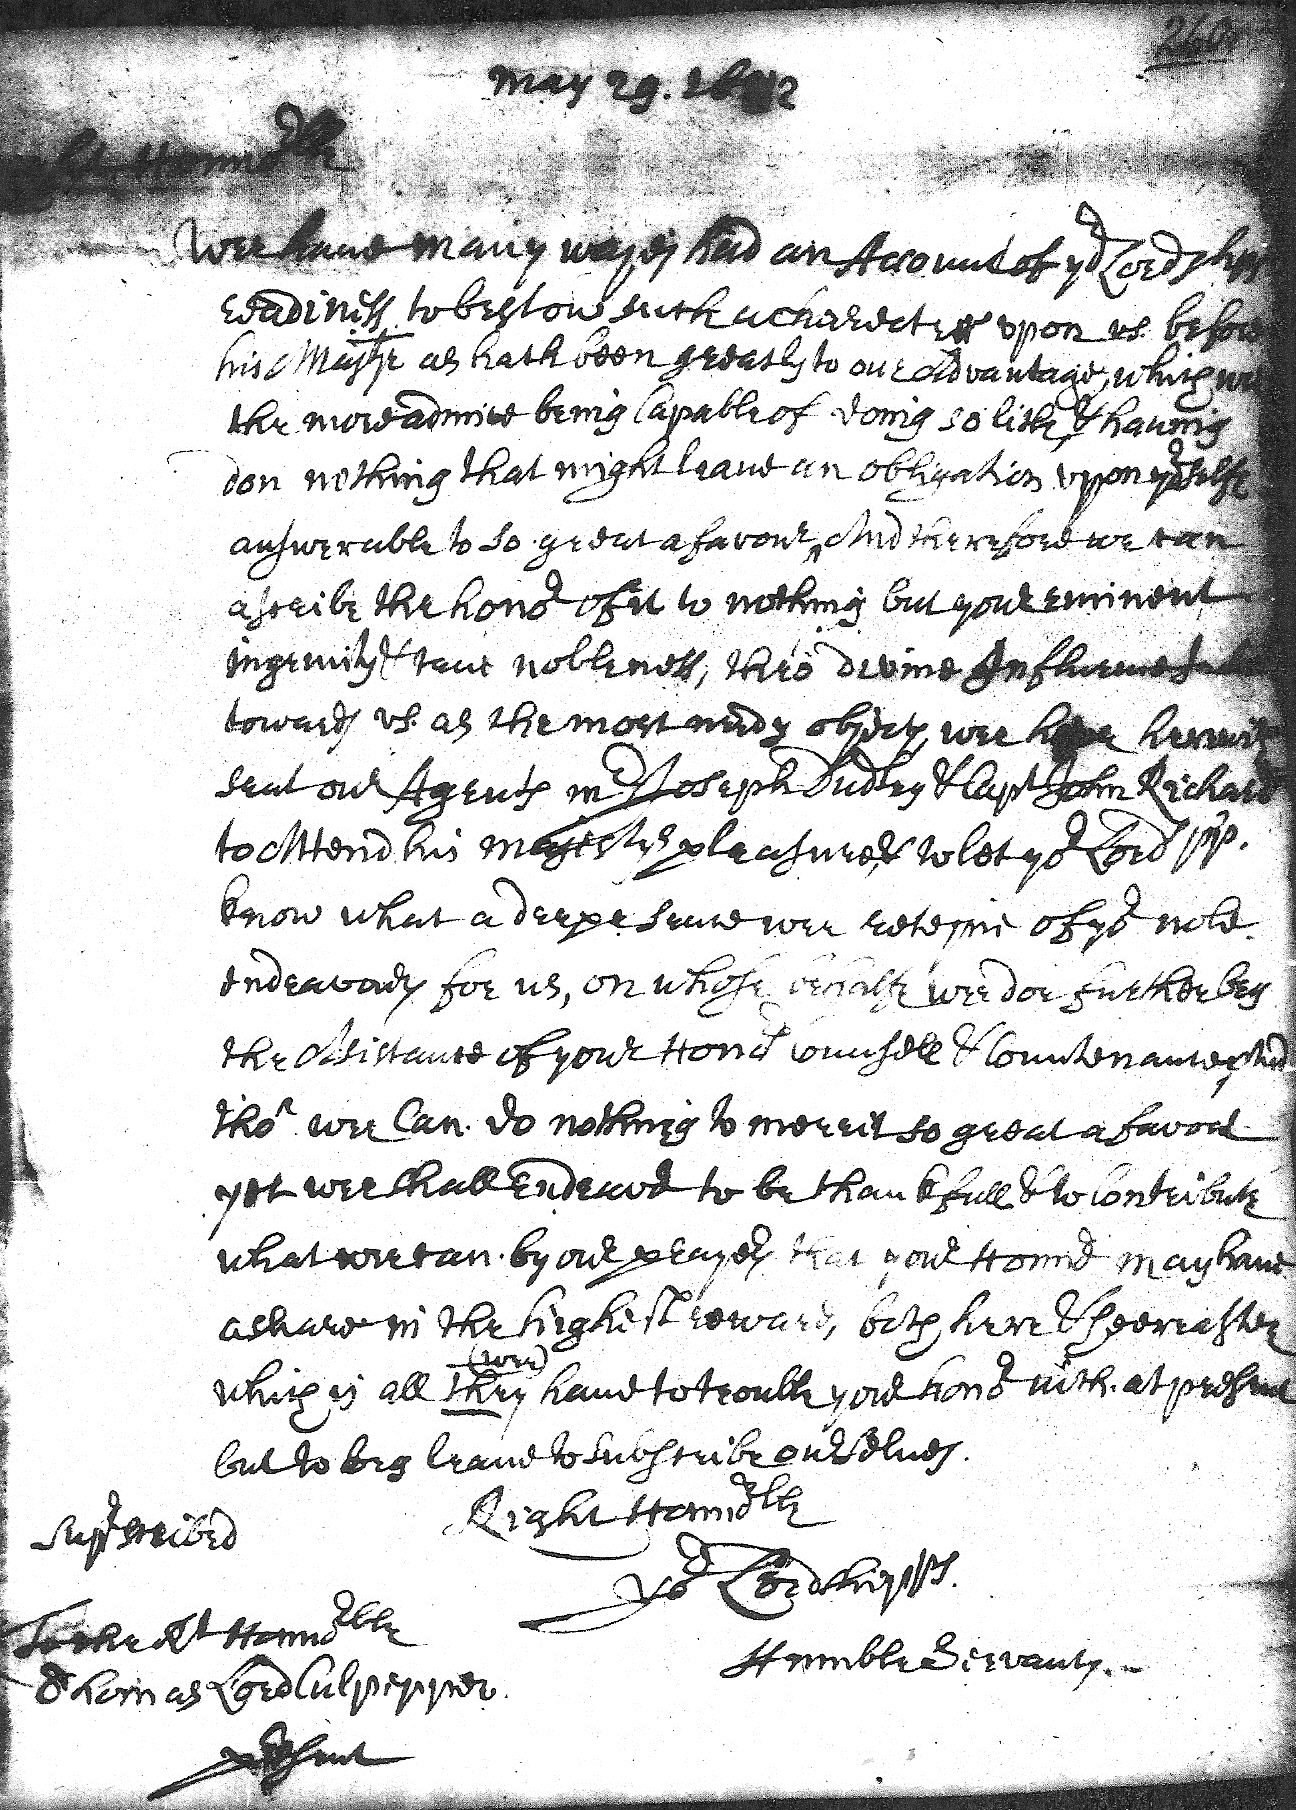 260
May 29. 1682
Honno^rble
Wee haue many wayes had an Account of yo^r Lordships
readiness to bestow such a charecter vpon vs. before
his Maj^tie as hath been greatly to our Advantage, which wee
the more admire being Capable of doing so litle, & hauing
don nothing that might leaue an obligation vpon yo^rselfe
answerable to so great a favour, And therefore we can
ascribe the hono^r of it to nothing but your eminent
ingenuity & true nobleness, thro divine Influence
towards vs. as the most needy objects, wee haue herewith
sent our Agents m^r Joseph Dudley & Cap^t John Richards
to Attend his majestys pleasure, & to let yo^r Lordspp.
know what a deepe sence wee reteyne of yo^r noble
endeavours for us, on whose behalfe wee doe further beg
the Assistance of your Hono^rs counsell & Countenance, And
tho^ wee Can do nothing to merrit so great a favour
yet wee shall Endeavo^r to be thankfull & to Contribute
what wee can. by our prayers that your Hono^r may haue
a share in the highest reward, both here & heereafter
(wee)
which is all they haue to trouble your hono^r with. at present
but to beg leaue to subscribe ourselues.
Right Honno^rble
yo^r Lordshipps.
Humble Servants.
Sup^rscribed
To the R^t Honno^rble
Thomas Lord Culpepper.
p^rsent